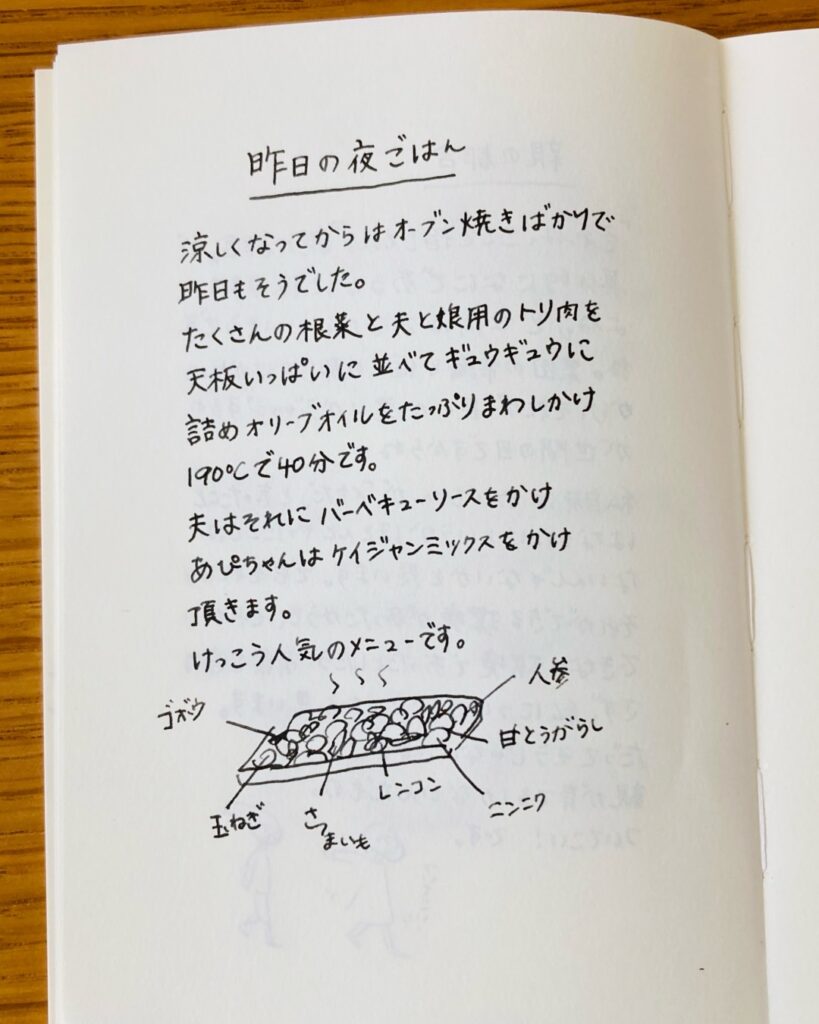 昨日の夜ごはん
涼しくなってからはオーブン焼きばかりで
昨日もそうでした。
たくさんの根菜と夫と娘用のトリ肉を
天板いっぱいに並べてギュウギュウに
詰めオリーブオイルをたっぷりまわしかけ
190℃で40分です。
夫はそれにバーベキューソースをかけ
あぴちゃんはケイジャンミックスをかけ
頂きます。
けっこう人気のメニューです。
人参
ゴボウ
甘とうがらし
レンコン
ニンニク
玉ねぎ
さつまいも